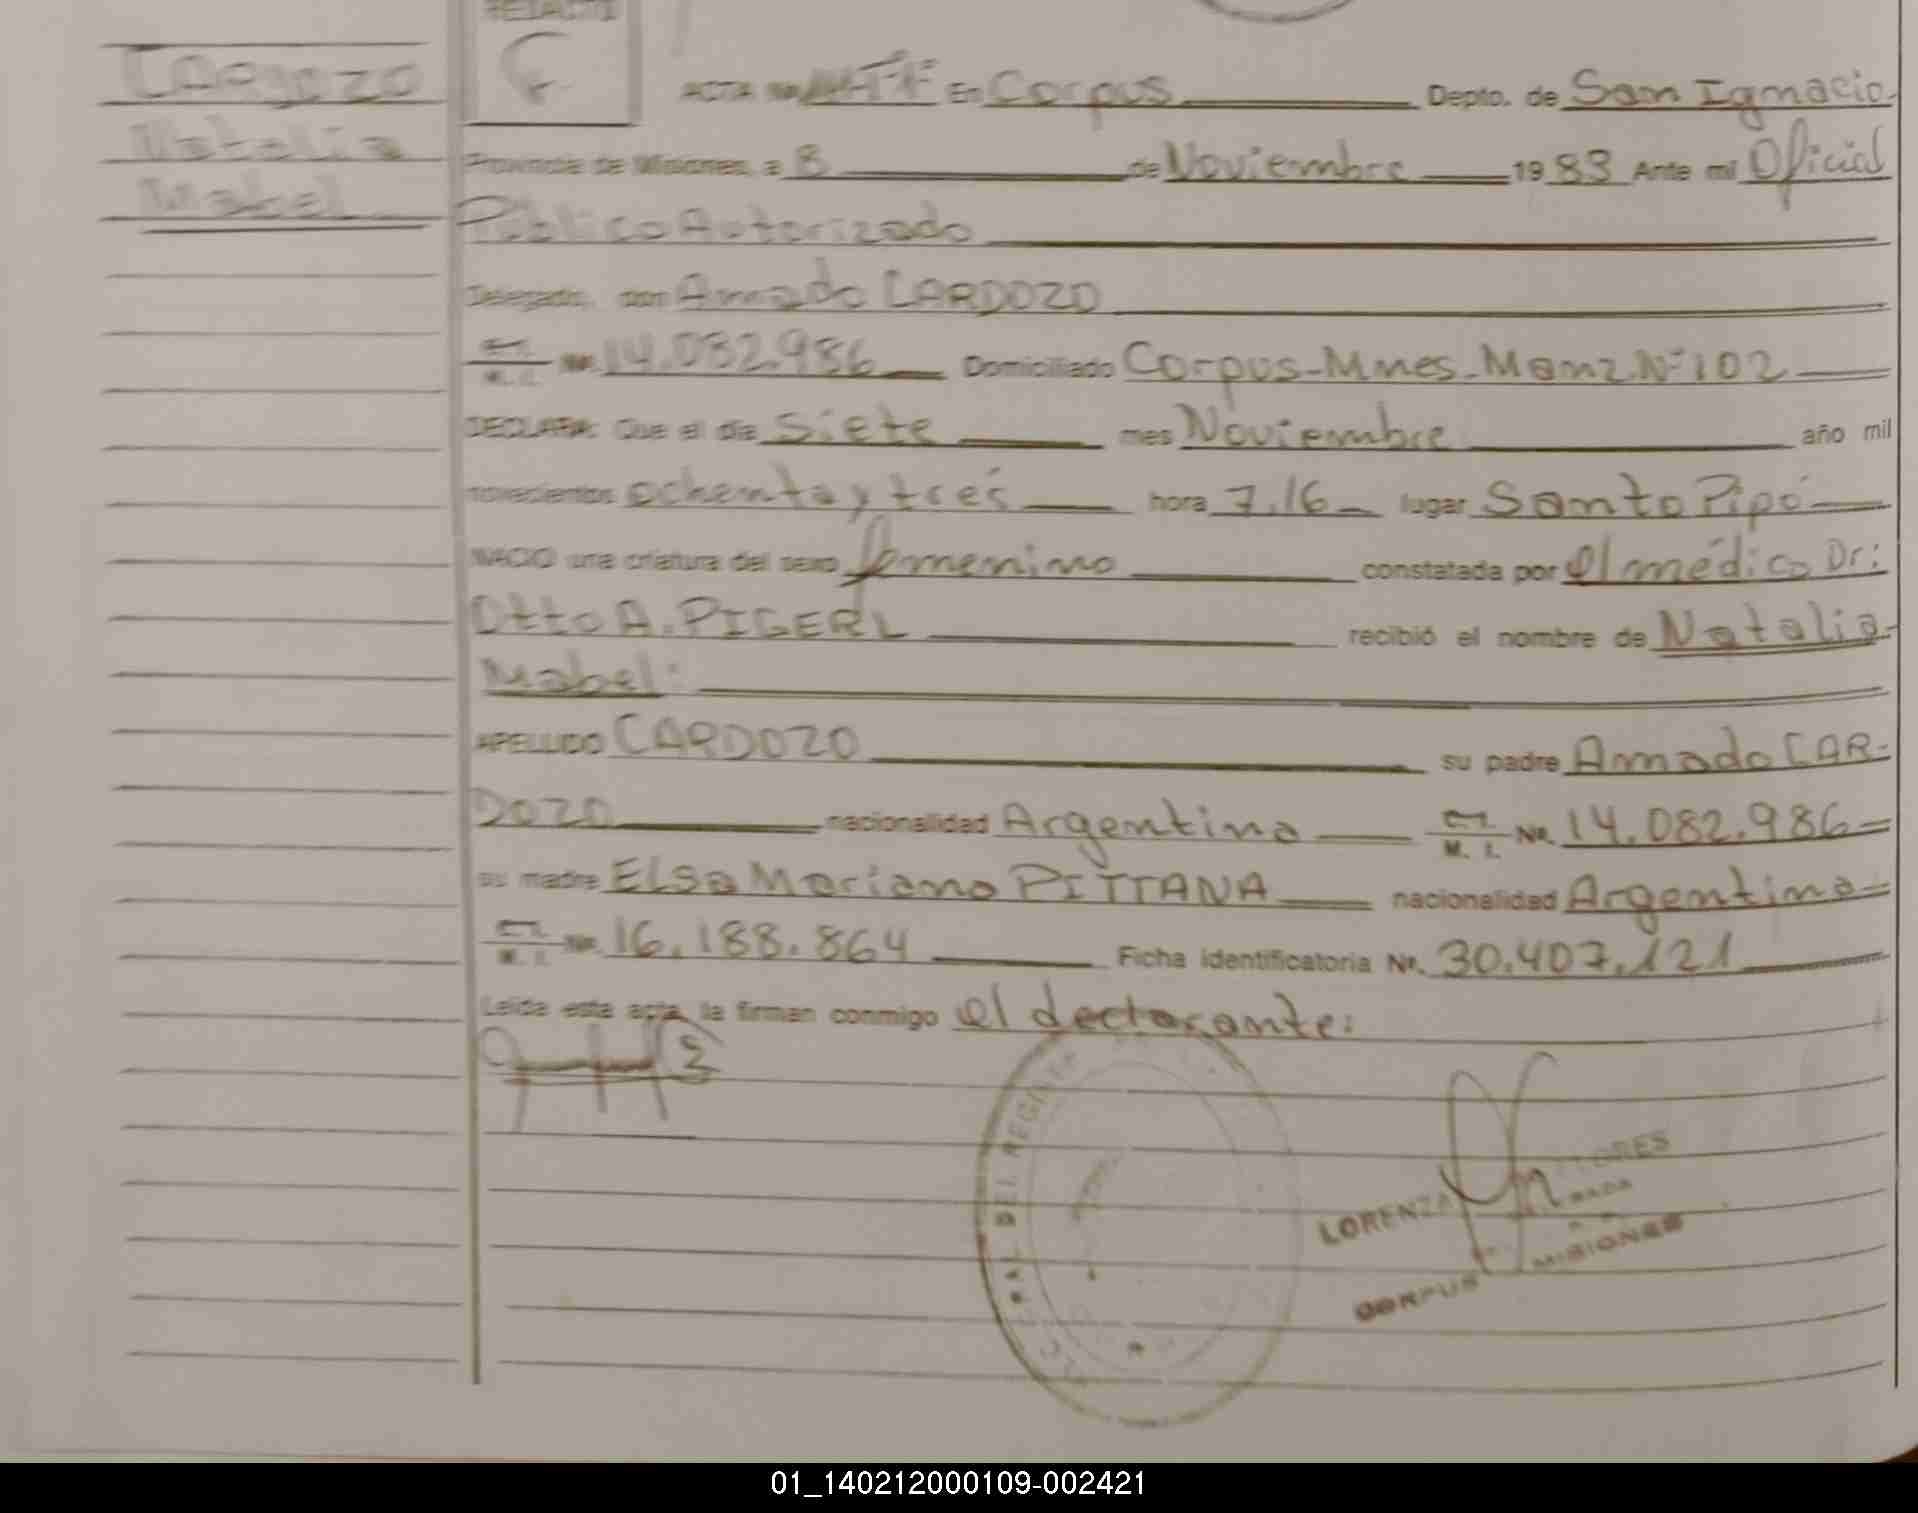 CARDOZO
Natalia
Mabel
REDACTO
ACTA En Corpus Depto. de San Ignacio
Provincia de Misiones, a 8 de Noviembre 1983 Ante mi Oficial
Público Autorizado
Delegado, por Amado CARDOZO
M. I. Nº. 14.082.986 Domiciliado Corpus-Mnes-Manz.Nº102
DECLARA: Que el día Siete mes Noviembre año mil
novecientos ochenta y tres hora 7,16 lugar Santo Pipó
NACIO una criatura del sexo femenino constatada por el médico Dr:
Otto A. PIGERL recibió el nombre de Natalia
Mabel:
APELLIDO CARDOZO su padre Amado CAR-
DOZO nacionalidad Argentina M. I. Nº. 14.082.986
su madre Elsa Mariana PITTANA nacionalidad Argentina
M. I. Nº. 16.188.864 Ficha identificatoria Nº. 30.407.121
Leida esta acta, la firman conmigo el declarante:
RAL DEL REGIST
LORENZA FLORES
CORPUS MISIONES
01_140212000109-002421